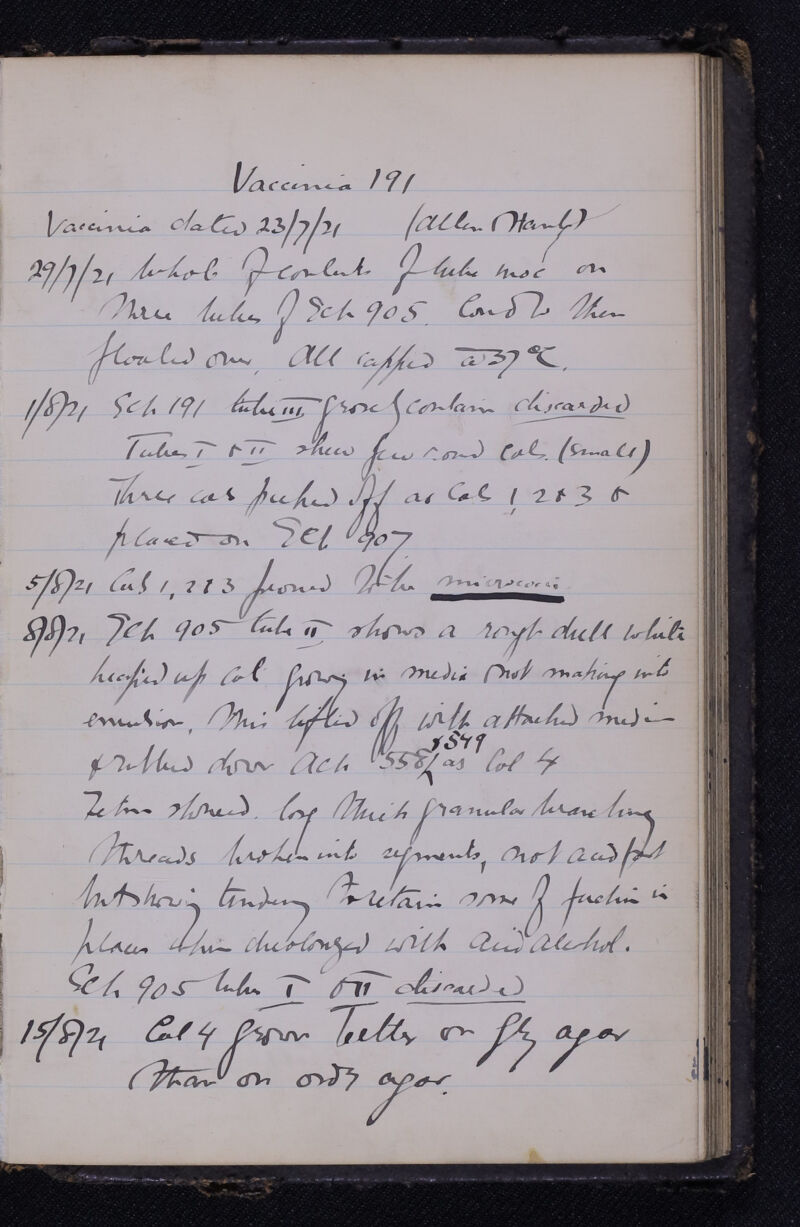 Vaccinia 191
Vaccinia dated 23/7/21 (Allen & Hanbys)
29/7/21 Whole of contents of tube inoc on
three tubes of Sch 905. Cond to then
floated over. All capped a 37°C.
1/8/21 Sch 191 tube III grossly contam discarded
Tubes I & II shew few cond cols. (small)
three cols picked off as Cols 1, 2 & 3 &
placed on Sch 907
5/8/21 Cols 1, 2 & 3 proved to be micrococci
8/8/21 Sch 905 tube II shows a rough dull white
heaped up col growing in media & not making into
emulsion. This lifted off with attached media
& rubbed down Ach 558 & 549 as Col 4
showed long thick granular branching
threads broken into segments, not acid fast
but showing tendency to retain some of fuchsin in
places when decolorized with acid alcohol.
Sch 905 tubes I & II discarded
15/8/21 Col 4 grows better on Gly agar
than on ordy agar.